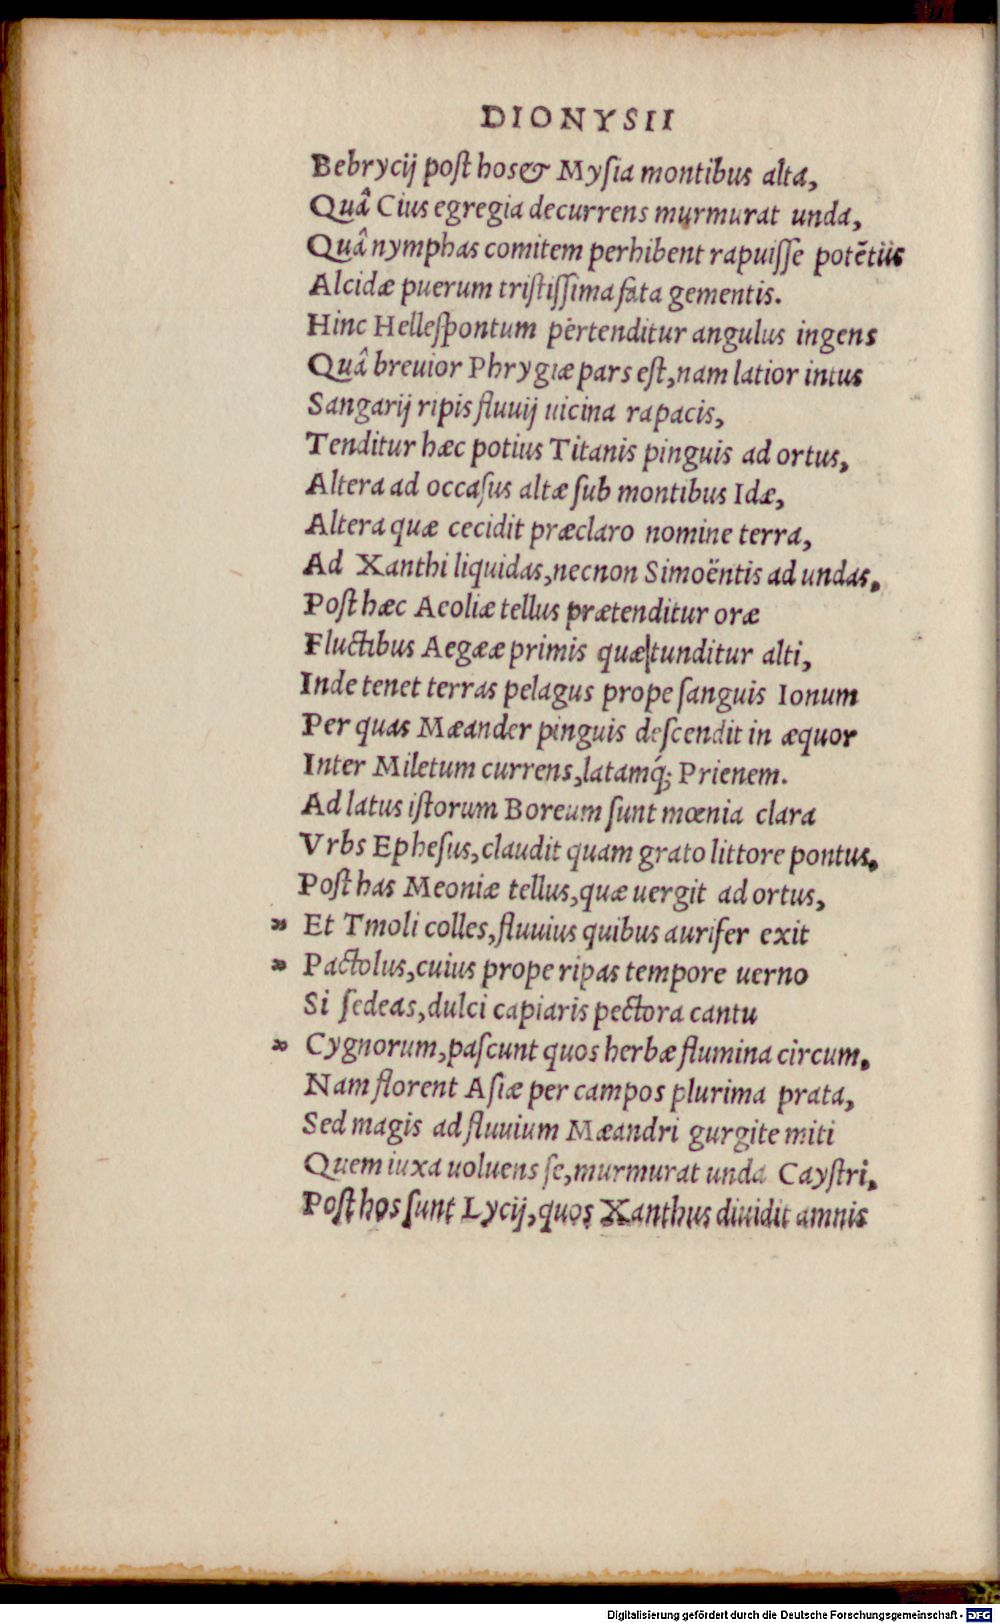 DIONYSII
Bebrycij post hos& Mysia montibus alta,
Quâ Cius egregia decurrens murmurat unda,
Quâ nymphas comitem perhibent rapuisse potētiis
Alcidæ puerum tristissima fata gementis.
Hinc Hellespontum pertenditur angulus ingens
Quâ breuior Phrygiæ pars est, nam latior intus
Sangarij ripis fluuij uicina rapacis,
Tenditur hæc potius Titanis pinguis ad ortus,
Altera ad occasus altæ sub montibus Idæ,
Altera quæ cecidit præclaro nomine terra,
Ad Xanthi liquidas, necnon Simoëntis ad undas.
Post hæc Aeoliæ tellus prætenditur oræ
Fluctibus Aegææ primis quæ tunditur alti,
Inde tenet terras pelagus prope sanguis Ionum
Per quas Mæander pinguis descendit in æquor
Inter Miletum currens, latamq́; Prienem.
Ad latus istorum Boreum sunt mœnia clara
Vrbs Ephesus, claudit quam grato littore pontus.
Post has Meoniæ tellus, quæ uergit ad ortus,
» Et Tmoli colles, fluuius quibus aurifer exit
» Pactolus, cuius prope ripas tempore uerno
Si sedeas, dulci capiaris pectora cantu
» Cygnorum, pascunt quos herbæ flumina circum.
Nam florent Asiæ per campos plurima prata,
Sed magis ad fluuium Mæandri gurgite miti
Quem iuxa uoluens se, murmurat unda Caystri.
Post hos sunt Lycij, quos Xanthus diuidit amnis
Digitalisierung gefördert durch die Deutsche Forschungsgemeinschaft - DFG